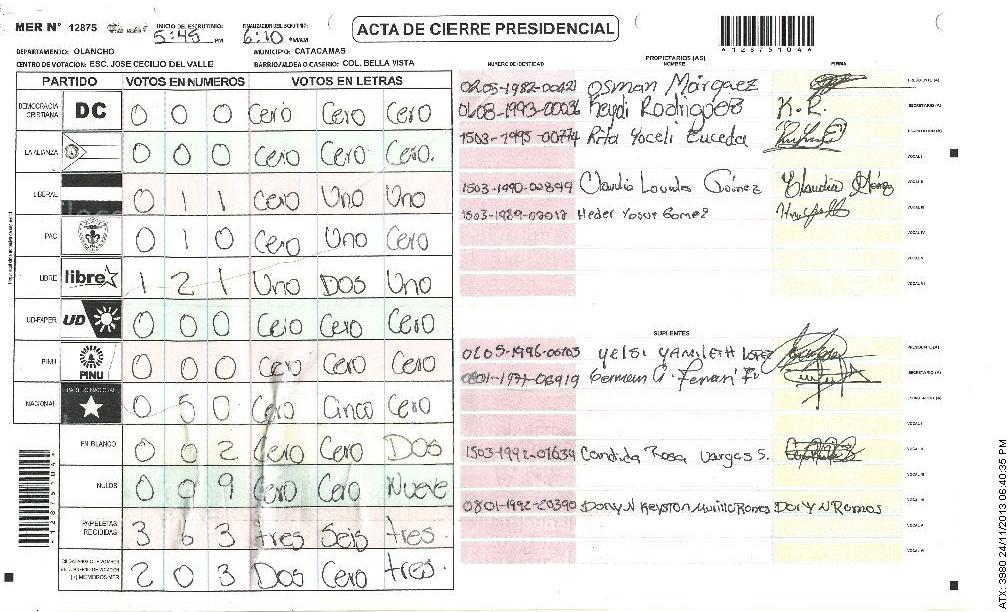 MER N° 12875 INICIO DEL ESCRUTINIO: 5:45 PM FINALIZACION DEL ESCRUTINIO: 6:10 ACTA DE CIERRE PRESIDENCIAL
*12875104*
DEPARTAMENTO: OLANCHO MUNICIPIO: CATACAMAS
CENTRO DE VOTACION: ESC. JOSE CECILIO DEL VALLE BARRIO/ALDEA O CASERIO: COL. BELLA VISTA
PARTIDO VOTOS EN NUMEROS VOTOS EN LETRAS
DEMOCRACIA CRISTIANA DC 0 0 0 Cero Cero Cero
LA ALIANZA 0 0 0 Cero Cero Cero.
LIBERAL 0 1 1 Cero Uno Uno
PAC 0 1 0 Cero Uno Cero
LIBRE libre 1 2 1 Uno Dos Uno
UD-FAPER UD 0 0 0 Cero Cero Cero
PINU PINU 0 0 0 Cero Cero Cero
NACIONAL PARTIDO NACIONAL 0 5 0 Cero Cinco Cero
EN BLANCO 0 0 2 Cero Cero Dos
NULOS 0 0 9 Cero Cero Nueve
PAPELETAS RECIBIDAS 3 6 3 tres Seis tres
(+) MIEMBROS MER 2 0 3 Dos Cero tres.
*12875104*
PROPIETARIOS (AS)
NUMERO DE IDENTIDAD NOMBRE FIRMA
Osman Márquez PRESIDENTE (A)
Keydi Rodriguez K.R. SECRETARIO (A)
1503-1995-00774 Rita Yoceli Euceda ESCRUTADOR (A)
VOCAL I
1503-1990-00899 Claudia Lourdes Gómez Claudia Gómez VOCAL II
Heder Yosue Gomez VOCAL III
VOCAL IV
VOCAL V
VOCAL VI
SUPLENTES
Yelsi YAMILETH LOPEZ PRESIDENTE (A)
0801-1977-06919 German SECRETARIO (A)
ESCRUTADOR (A)
VOCAL I
1503-1992-01634 Candida Rosa Vargas S. VOCAL II
VOCAL III
0801-1992-20390 DORYN Keyston Murillo Ramos DORYN Ramos
VOCAL V
VOCAL VI
ATX: 3980 24/11/2013 06:40:35 PM